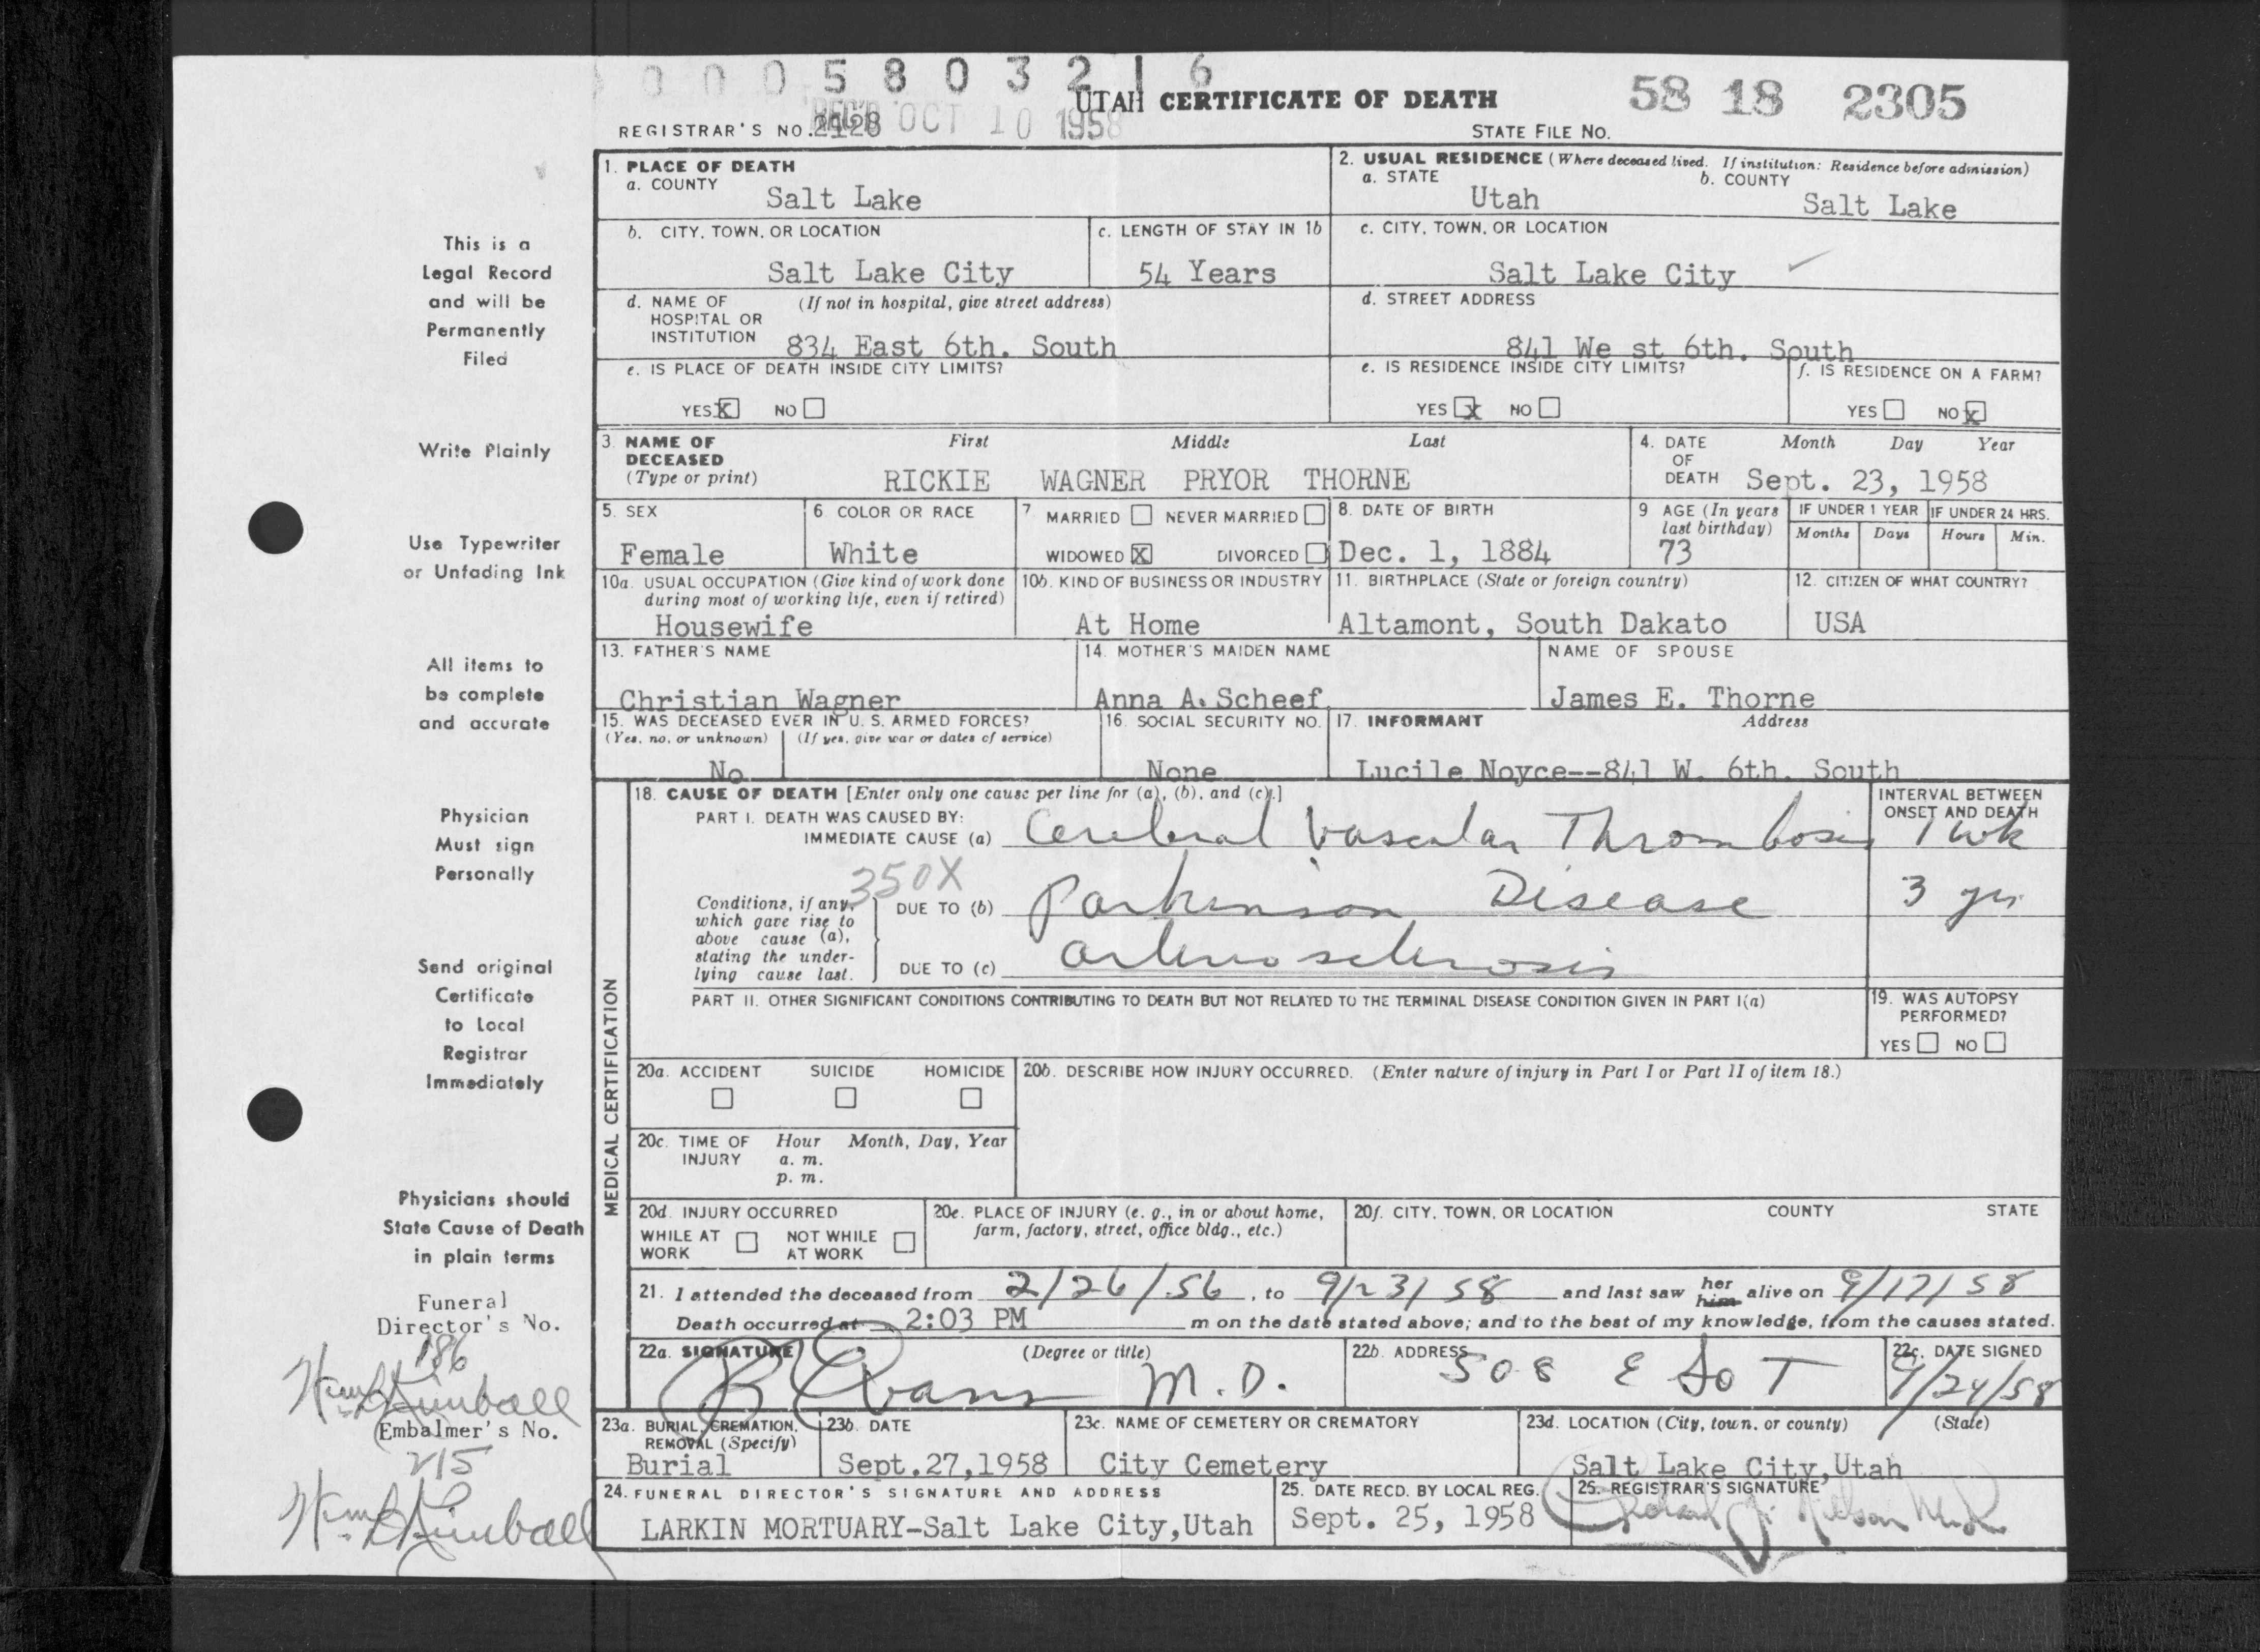 0 0 0 5 8 0 3 2 1 6
UTAH CERTIFICATE OF DEATH
58 18 2305
REGISTRAR'S NO. 2128 REC'D OCT 10 1958
STATE FILE NO.
1. PLACE OF DEATH
a. COUNTY
Salt Lake
2. USUAL RESIDENCE (Where deceased lived. If institution: Residence before admission)
a. STATE
Utah
b. COUNTY
Salt Lake
b. CITY, TOWN, OR LOCATION
Salt Lake City
c. LENGTH OF STAY IN 1b
54 Years
c. CITY, TOWN, OR LOCATION
Salt Lake City
d. NAME OF (If not in hospital, give street address)
HOSPITAL OR
INSTITUTION
834 East 6th. South
d. STREET ADDRESS
841 We st 6th. South
e. IS PLACE OF DEATH INSIDE CITY LIMITS?
YES X NO
e. IS RESIDENCE INSIDE CITY LIMITS?
YES X NO
f. IS RESIDENCE ON A FARM?
YES NO X
3. NAME OF
DECEASED
(Type or print)
First Middle Last
RICKIE WAGNER PRYOR THORNE
4. DATE
OF
DEATH
Month Day Year
Sept. 23, 1958
5. SEX
Female
6. COLOR OR RACE
White
7. MARRIED NEVER MARRIED
WIDOWED X DIVORCED
8. DATE OF BIRTH
Dec. 1, 1884
9 AGE (In years
last birthday)
73
IF UNDER 1 YEAR
Months Days
IF UNDER 24 HRS.
Hours Min.
10a. USUAL OCCUPATION (Give kind of work done
during most of working life, even if retired)
Housewife
10b. KIND OF BUSINESS OR INDUSTRY
At Home
11. BIRTHPLACE (State or foreign country)
Altamont, South Dakato
12. CITIZEN OF WHAT COUNTRY?
USA
13. FATHER'S NAME
Christian Wagner
14. MOTHER'S MAIDEN NAME
Anna A. Scheef
NAME OF SPOUSE
James E. Thorne
15. WAS DECEASED EVER IN U. S. ARMED FORCES?
(Yes, no, or unknown) (If yes, give war or dates of service)
No
16. SOCIAL SECURITY NO.
None
17. INFORMANT Address
Lucile Noyce--841 W. 6th. South
MEDICAL CERTIFICATION
18. CAUSE OF DEATH [Enter only one cause per line for (a), (b), and (c).]
PART I. DEATH WAS CAUSED BY:
IMMEDIATE CAUSE (a) Cerebral Vascular Thrombosis
INTERVAL BETWEEN
ONSET AND DEATH
1 wk
350X
Conditions, if any,
which gave rise to
above cause (a),
stating the under-
lying cause last.
DUE TO (b) Parkinson Disease
3 yrs
DUE TO (c) arteriosclerosis
PART II. OTHER SIGNIFICANT CONDITIONS CONTRIBUTING TO DEATH BUT NOT RELATED TO THE TERMINAL DISEASE CONDITION GIVEN IN PART I(a)
19. WAS AUTOPSY
PERFORMED?
YES NO
20a. ACCIDENT SUICIDE HOMICIDE
20b. DESCRIBE HOW INJURY OCCURRED. (Enter nature of injury in Part I or Part II of item 18.)
20c. TIME OF Hour Month, Day, Year
INJURY a. m.
p. m.
20d. INJURY OCCURRED
WHILE AT NOT WHILE
WORK AT WORK
20e. PLACE OF INJURY (e. g., in or about home,
farm, factory, street, office bldg., etc.)
20f. CITY, TOWN, OR LOCATION COUNTY STATE
21. I attended the deceased from 2/26/56, to 9/23/58 and last saw her him alive on 9/17/58
Death occurred at 2:03 PM m on the date stated above; and to the best of my knowledge, from the causes stated.
22a. SIGNATURE (Degree or title)
R Evans M.D.
22b. ADDRESS
508 E So T
22c. DATE SIGNED
9/24/58
23a. BURIAL, CREMATION,
REMOVAL (Specify)
Burial
23b. DATE
Sept.27,1958
23c. NAME OF CEMETERY OR CREMATORY
City Cemetery
23d. LOCATION (City, town, or county) (State)
Salt Lake City,Utah
24. FUNERAL DIRECTOR'S SIGNATURE AND ADDRESS
LARKIN MORTUARY-Salt Lake City,Utah
25. DATE RECD. BY LOCAL REG.
Sept. 25, 1958
25. REGISTRAR'S SIGNATURE
This is a
Legal Record
and will be
Permanently
Filed
Write Plainly
Use Typewriter
or Unfading Ink
All items to
be complete
and accurate
Physician
Must sign
Personally
Send original
Certificate
to Local
Registrar
Immediately
Physicians should
State Cause of Death
in plain terms
Funeral
Director's No.
186
Wm Kimball
Embalmer's No.
215
Wm Kimball